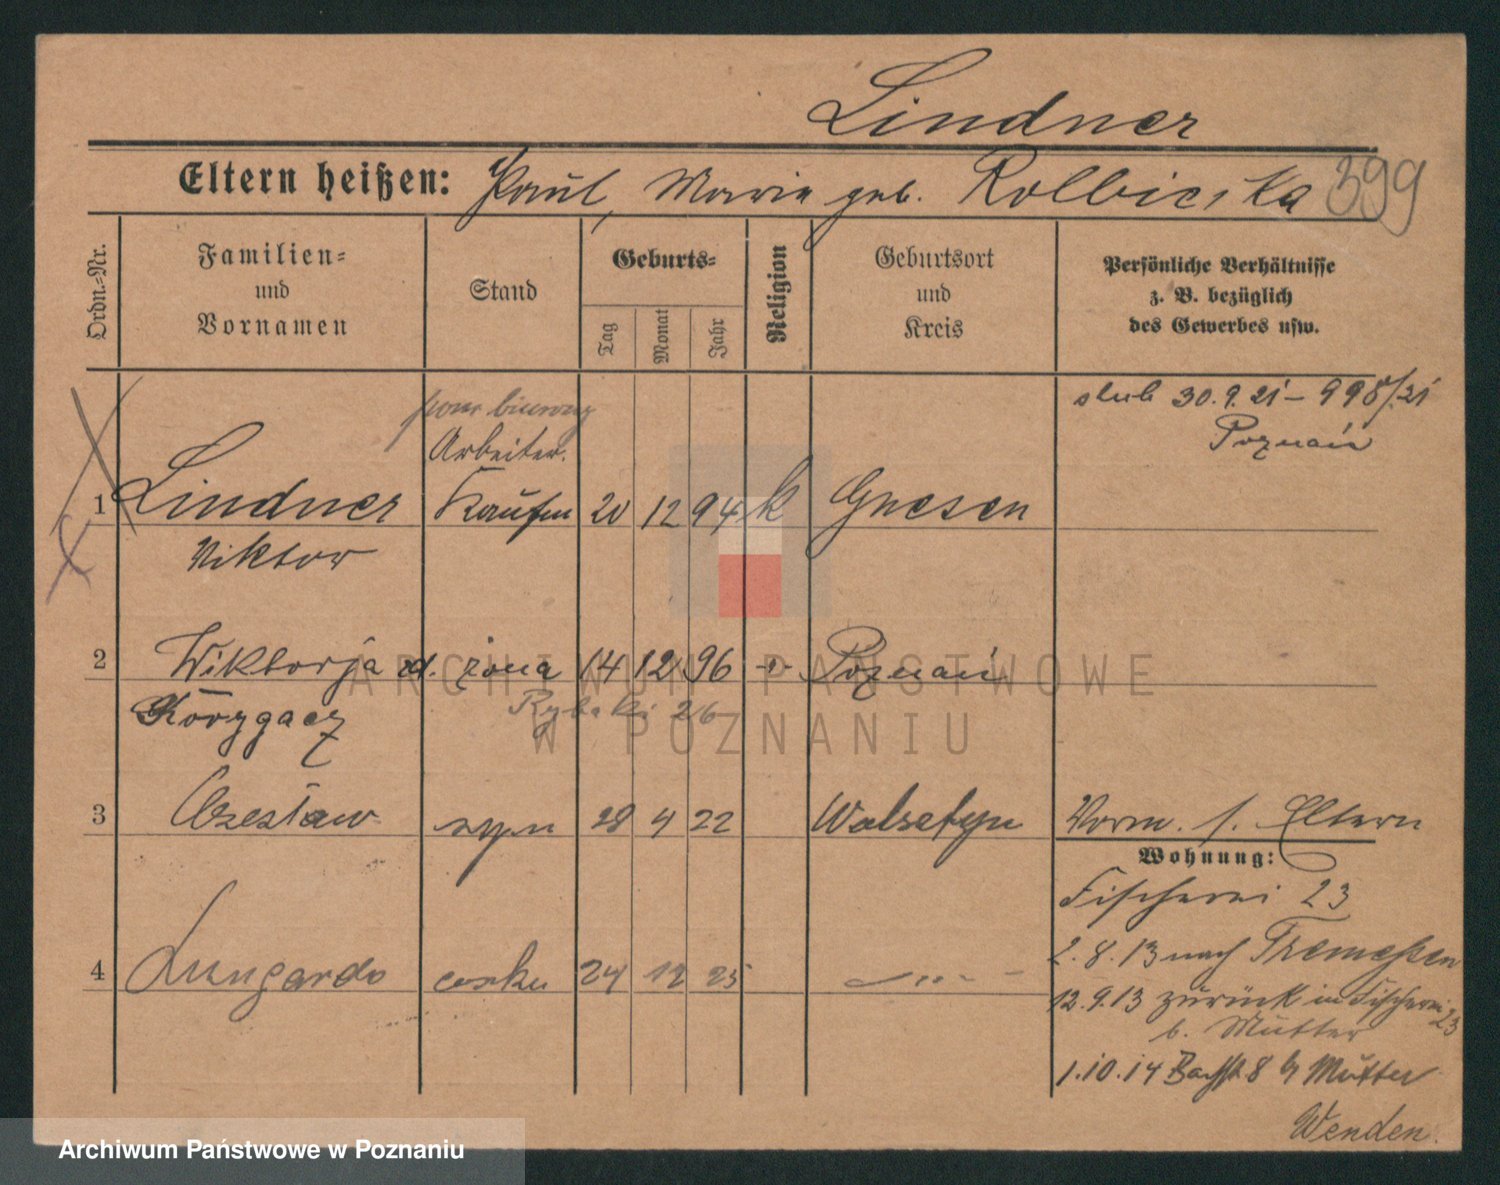 Lindner
Eltern heißen: Paul, Maria geb. Rolbiecka 399
Ordn.=Nr.
Familien= und Vornamen
Stand
Geburts=
Tag
Monat
Jahr
Religion
Geburtsort und Kreis
Persönliche Verhältnisse
z. B. bezüglich
des Gewerbes usw.
ślub 30.9.21 – 998/21
Poznań
pom. biurowy
Arbeiter.
1 Lindner Kaufm 20 12 94 k Gnesen
Viktor
2 Wiktorja zd. żona 14 12 96 -"- Poznań
Korzygacz
Rybaki 26
3 Czesław syn 28 4 22 Wolsztyn Vorm. s. Eltern
Wohnung:
Fischerei 23
4 córka 24 12 25 - " - -
2.8.13 nach Tremessen
12.9.13 zurück in Fischerei 23
b. Mutter
1.10.14 8 b Mutter
Wenden.
ARCHIWUM PAŃSTWOWE
W POZNANIU
Archiwum Państwowe w Poznaniu